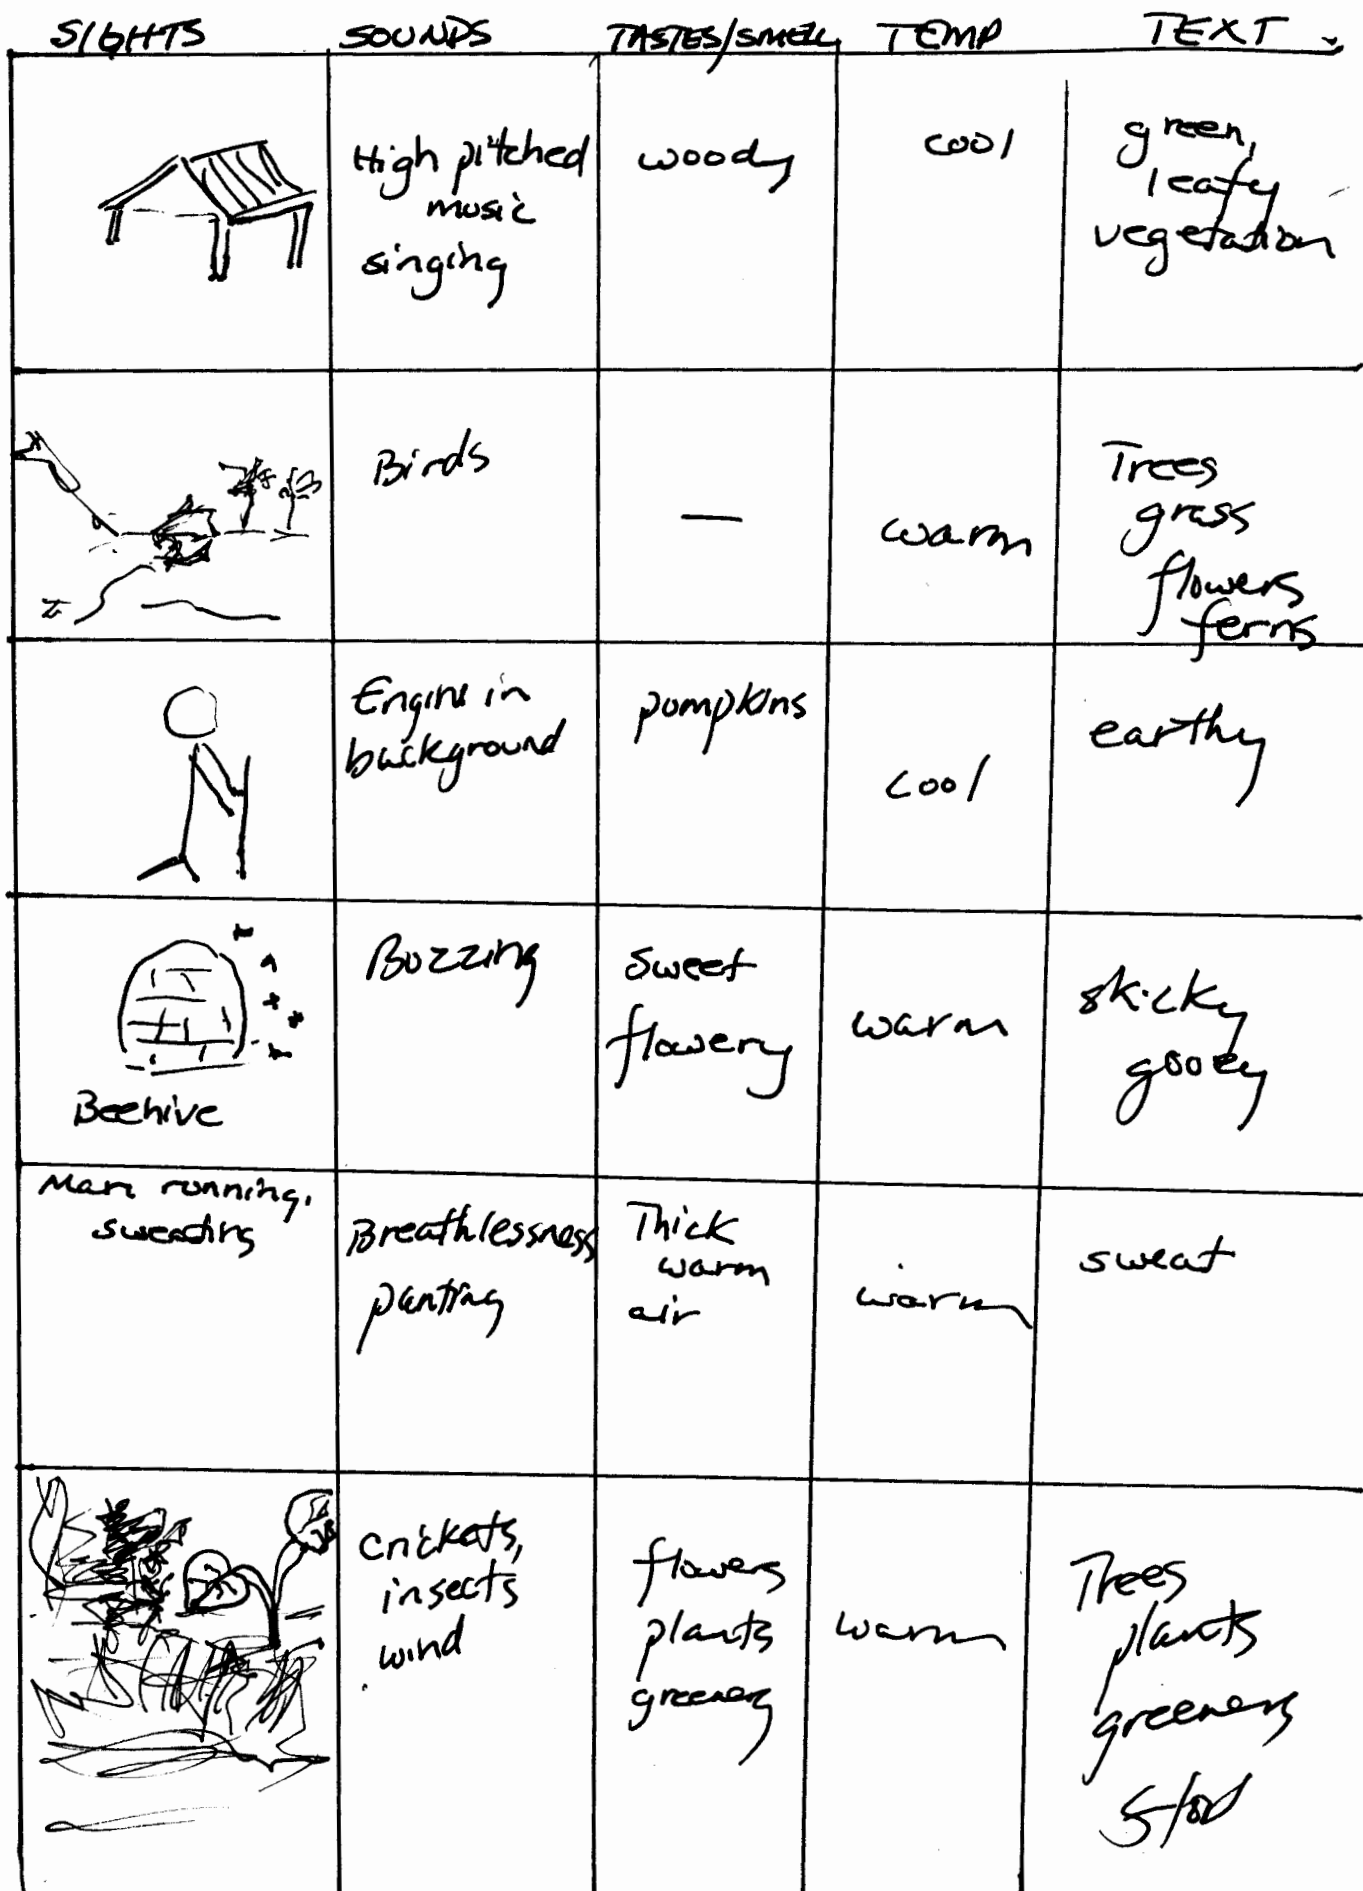 SIGHTS SOUNDS TASTES/SMELL TEMP TEXT
High pitched
music
singing
woody
cool
green,
leafy
vegetation
Birds
—
warm
Trees
grass
flowers
ferns
Engine in
background
pumpkins
cool
earthy
Beehive
Buzzing
Sweet
flowery
warm
skicky
gooey
Man running,
sweating
Breathlessness
panting
Thick
warm
air
warm
sweat
crickets,
insects
wind
flowers
plants
greenery
warm
Trees
plants
greenery